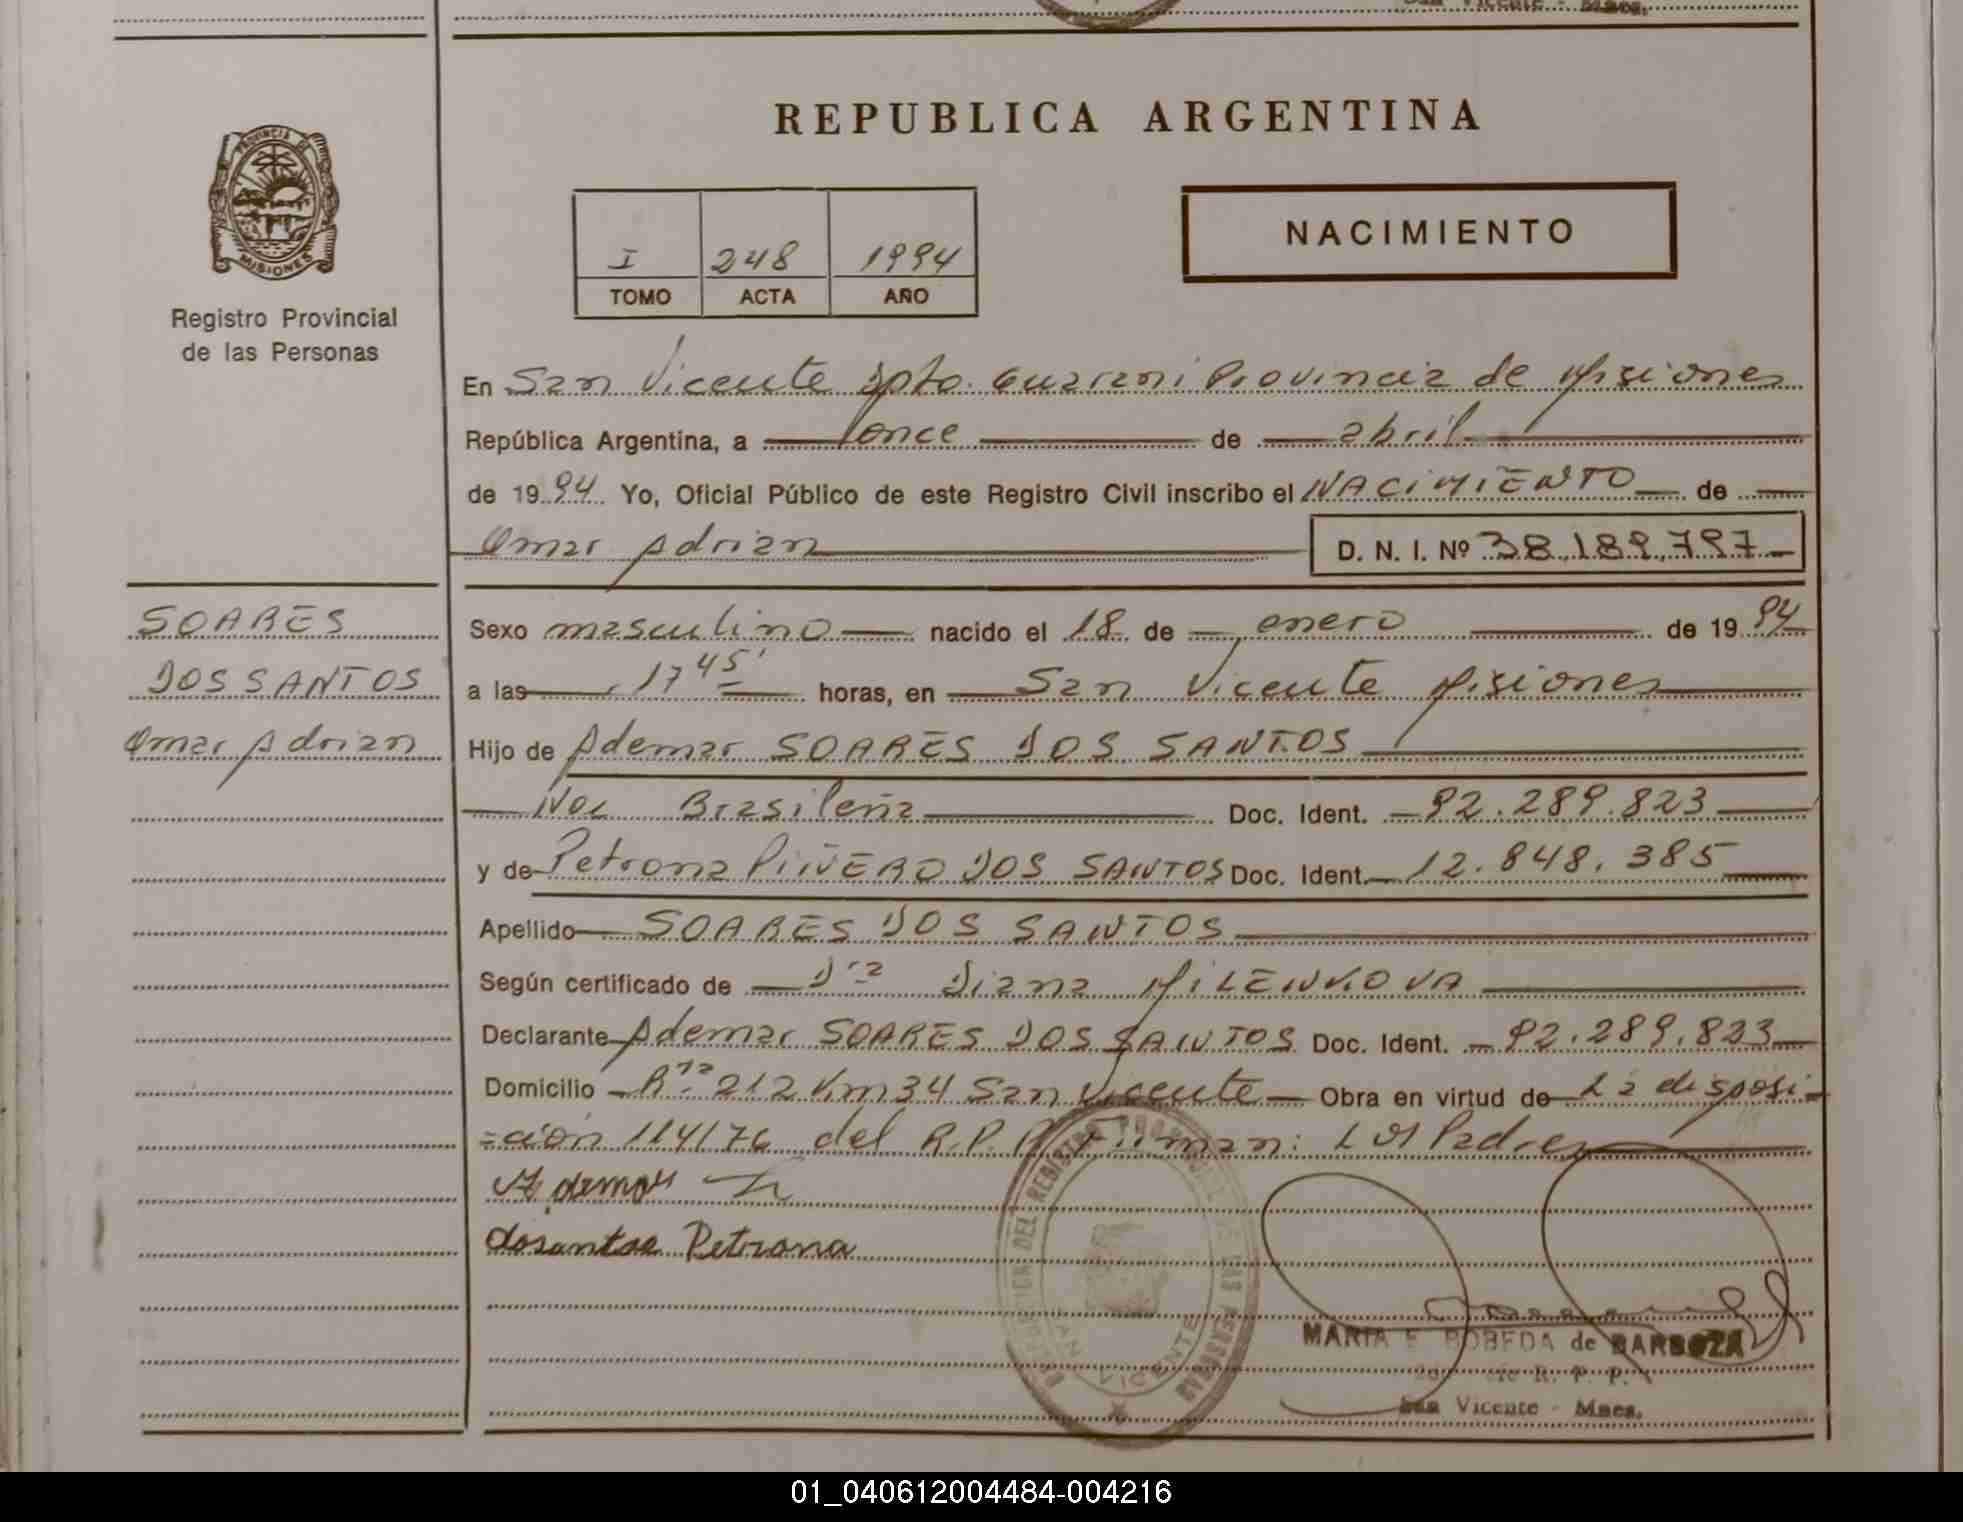 San Vicente - Mnes.
REPUBLICA ARGENTINA
PROVINCIA DE
MISIONES
Registro Provincial
de las Personas
I 248 1994
TOMO ACTA AÑO
NACIMIENTO
En San Vicente Dpto. Guarani Provincia de Misiones
República Argentina, a once de abril
de 1994 Yo, Oficial Público de este Registro Civil inscribo el NACIMIENTO de
Omar Adrian D. N. I. Nº 38.189.797
SOARES
DOS SANTOS
Omar Adrian
Sexo masculino nacido el 18 de enero de 1994
a las 17 45' horas, en San Vicente Misiones
Hijo de Ademar SOARES DOS SANTOS
Nac Brasileña Doc. Ident. 92.289.823
y de Petrona PIÑERO DOS SANTOS Doc. Ident. 12.848.385
Apellido SOARES DOS SANTOS
Según certificado de Dra Diana MILENKOVA
Declarante Ademar SOARES DOS SANTOS Doc. Ident. 92.289.823
Domicilio Rta 212 Km 34 San Vicente Obra en virtud de La disposi-
=ción 114/76 del R.P.P. Firman: Los Padres
Ademar
dosantos Petrona
DEL REGISTRO PROVINCIAL DE LAS PERSONAS
SAN VICENTE
MARIA E. BOBEDA de BARBOZA
R. P. P.
San Vicente - Mnes.
01_040612004484-004216